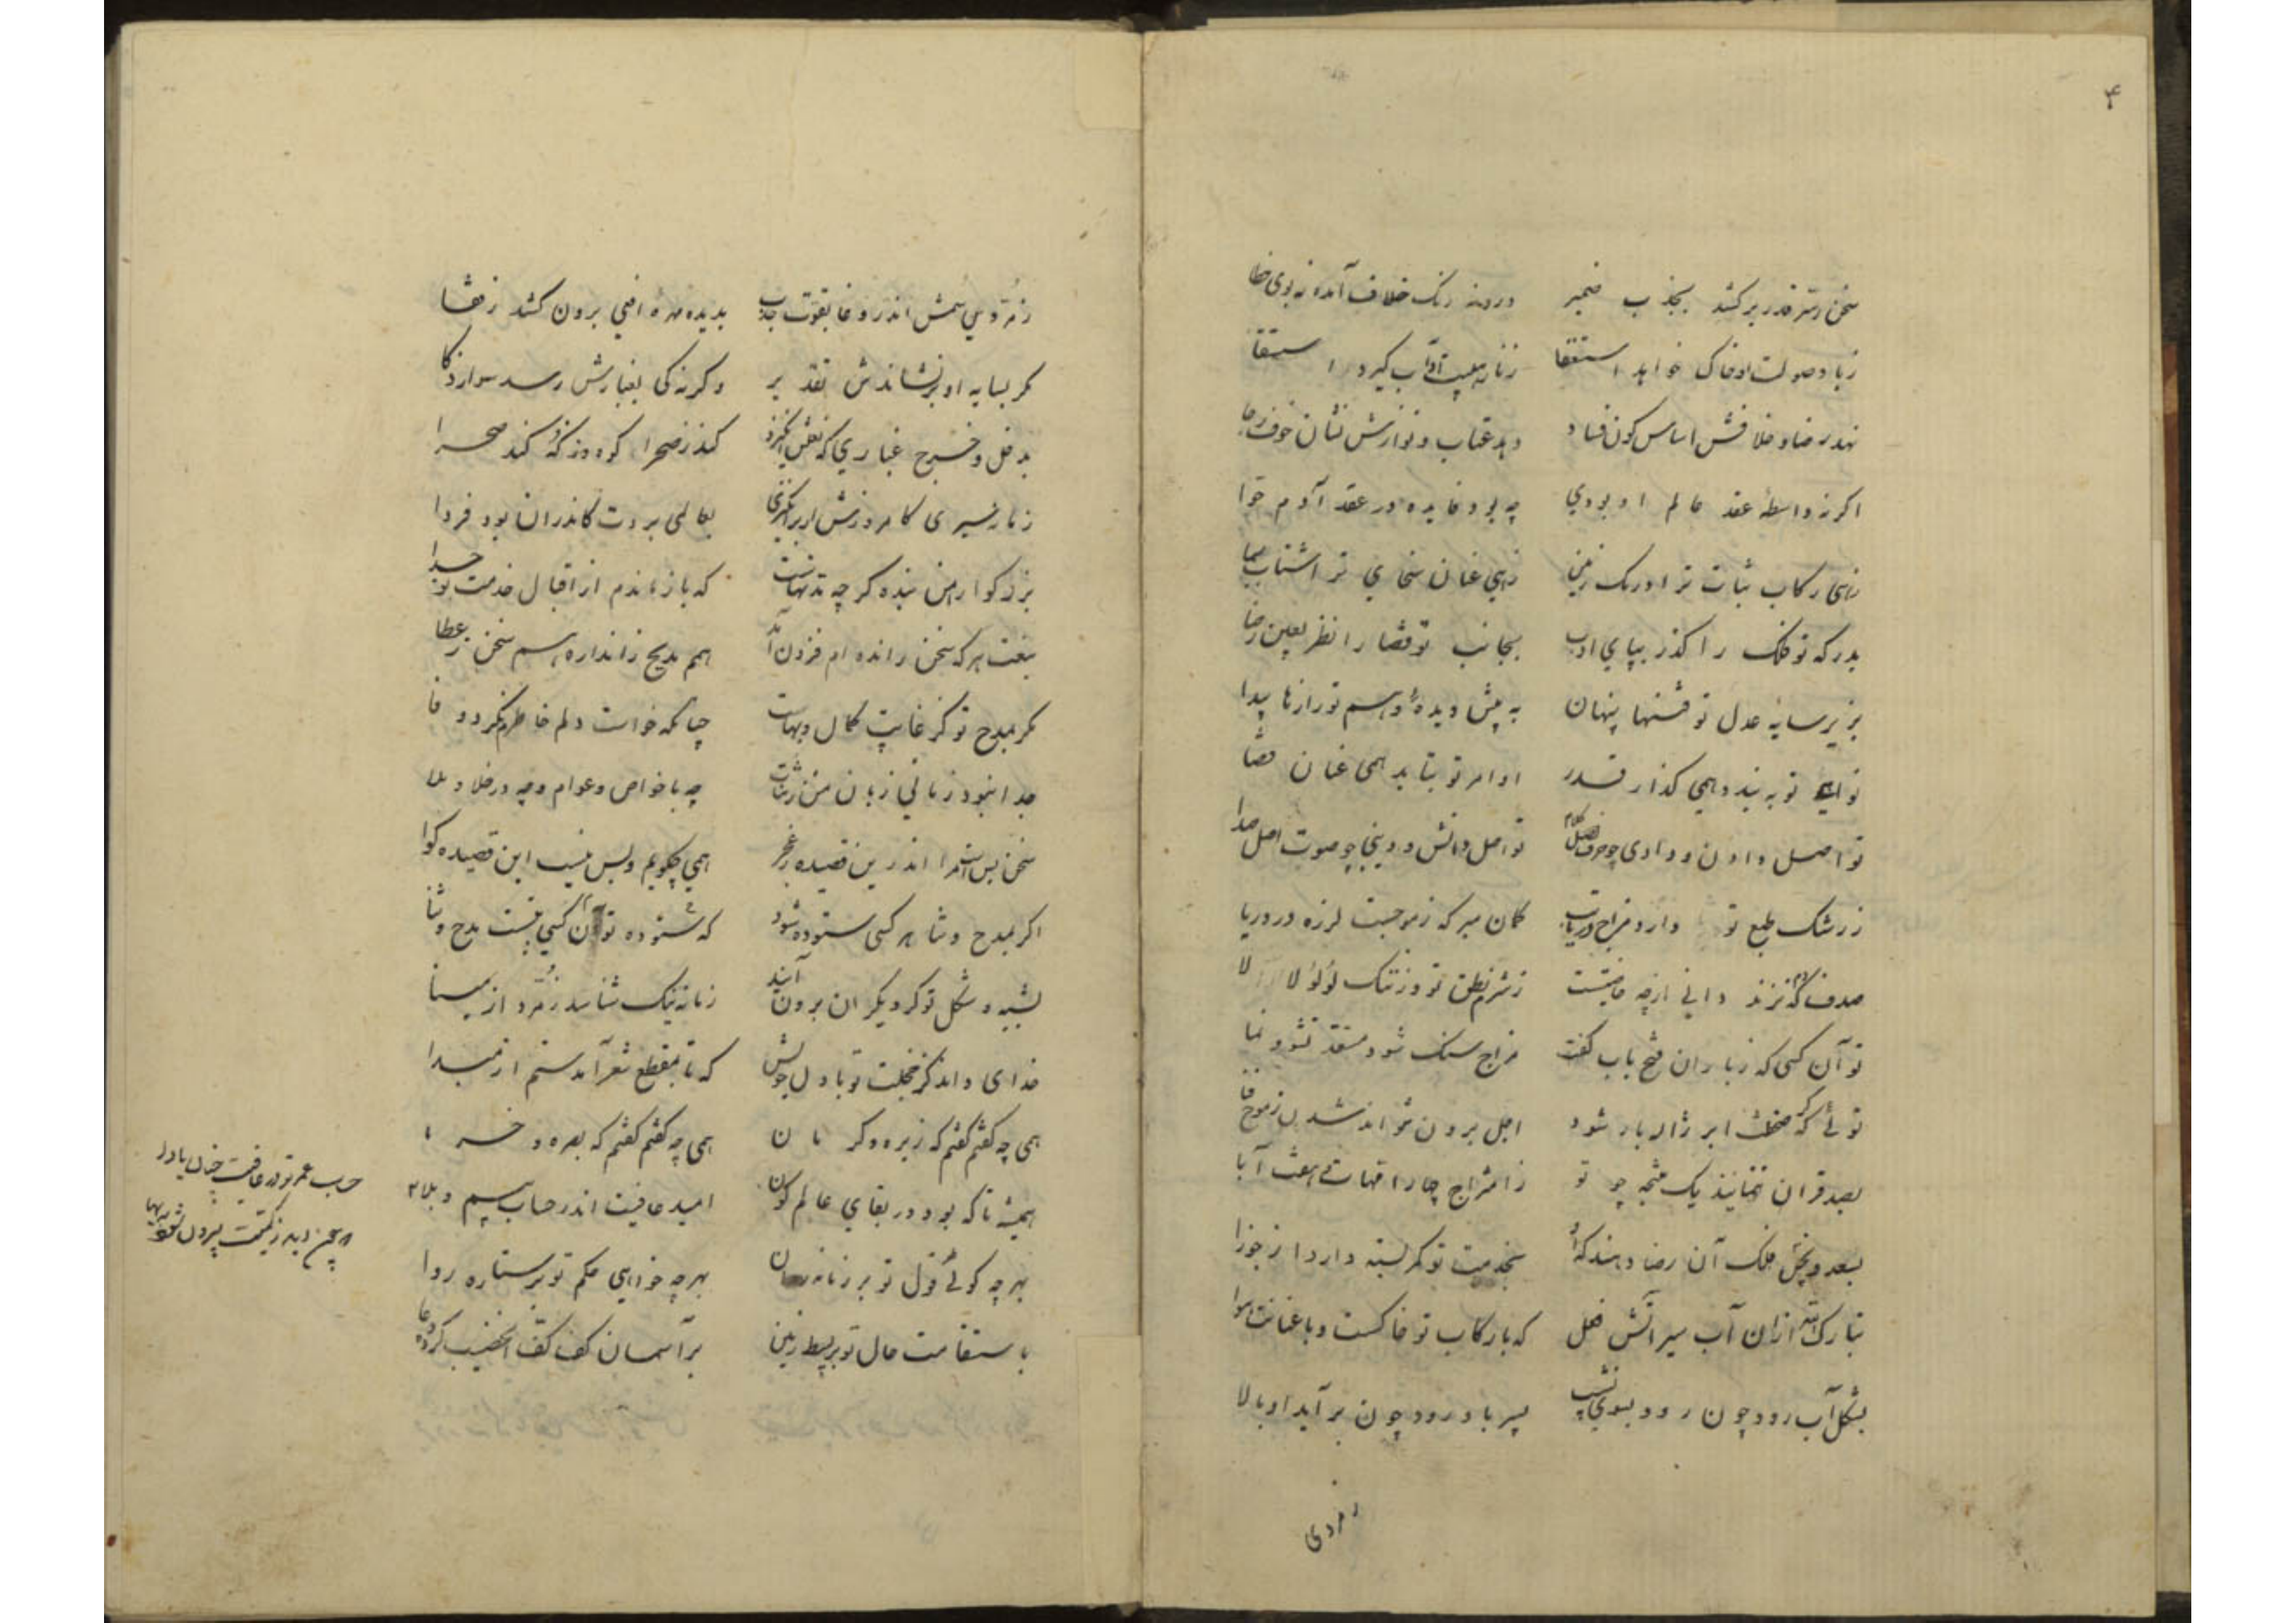 ۴
سخن ز سر قدر برکشد بجذب ضمیر    درو نه رنک خلاف آمد و نه بوی خطا
ز باد صولت او خاک خواهد استعفا    ز نار هیبت او آب کیرد استسقا
نهد رضا و خلافش اساس کون و فساد    دهد عتاب و نوازش نشان خوف و رجا
اکر نه واسطه عقد عالم او بودی    چه بود فایده در عقد آدم حوا
زهی رکاب ثبات ترا درنک زمین    زهی عنان سخای ترا شتاب سما
بدرکه تو فلک را کذر بپای ادب    بجانب تو قضا را نظر بعین رضا
بزیر سایه عدل تو فتنها پنهان    به پیش دیده وهم تو رازها پیدا
نواهی تو به بندد همی کذار قدر    اوامر تو بتابد همی عنان قضا
تو اصل دادن و دادی چو حرف اصل کلام    تو اصل دانش و دینی چو صوت اصل صدا
ز رشک طبع تو دارد مزاج دریا تب    کمان مبر که ز موجست لرزه در دریا
صدف که دم نزند دانی از چه خاصیتست    ز شرم نطق تو وز ننک لؤلؤ لالا
تو آن کسی که ز باران فتح باب کفت    مزاج سنک شود مستعد نشو و نما
توئی که کر سخطت ابر ژاله بار شود    اجل برون نتواند شدن ز موج فنا
بصد قران ننماید یک نتیجه چو تو    ز امتزاج چهار امهات و هفت آبا
بسعد و نحس فلک آن رضا دهند که او    بخدمت تو کمر بسته دارد از جوزا
تبارک الله ازان آب سیر آتش فعل    که با رکاب تو خاکست و با عنانت هوا
بشکل آب رود چون رود بسوی نشیب    بسیر باد رود چون برآید او ببالا
زمردی
زمردین سمش اندر وغا بقوت جذب    بدیده مهره افعی برون کشد ز قفا
مکر بسایه او برنشاندش تقدیر    وکرنه کی بغبارش رسد سوار ذکا
بدخل و خرج غباری که نعلش انکیزد    کند ز صحرا کوه و ز که کند صحرا
زمانه سیری کامروزش ار برانکیزی    بعالمی بردت کاندران بود فردا
بزرکوارا من بنده کرچه مدتهاست    که باز ماندم از اقبال خدمت تو جدا
بنعت هر که سخن رانده ام فزون آمد    همم مدیح ز اندازه هم سخن ز عطا
مکر بمدح تو کز غایت کمال و بهات    چنانکه خواست دلم خاطرم نکرد وفا
جدا نبود زمانی زبان من ز ثنات    چه با خواص و عوام و چه در خلا و ملا
سخن بس است مرا اندرین قصیده ز عجز    همی چکویم و بس نیست این قصیده کوا
اکر بمدح و ثنا هر کسی ستوده شود    که ستوده تو آن کسی بتست مدح و ثنا
بشبه و شکل تو کر دیکران برون آیند    زمانه نیک شناسد زمرد از مینا
خدای داند کز خجلت تو با دل خویش    که تا بمقطع شعر آمدستم از مبدا
همی چه کفتم کفتم که زیره و کرمان    همی چه کفتم کفتم که بصره و خرما
همیشه تا که بود در بقای عالم کون    امید عافیت اندر حساب بیم و بلا
بهر چه کوئی قول تو بر زمانه روان    بهر چه خواهی حکم تو بر ستاره روا
باستقامت حال تو بر بسیط زمین    بر آسمان کف کف الخضیب کرده دعا
حساب عمر تو در عافیت چنان بادا
که از کمیت بیرون شود